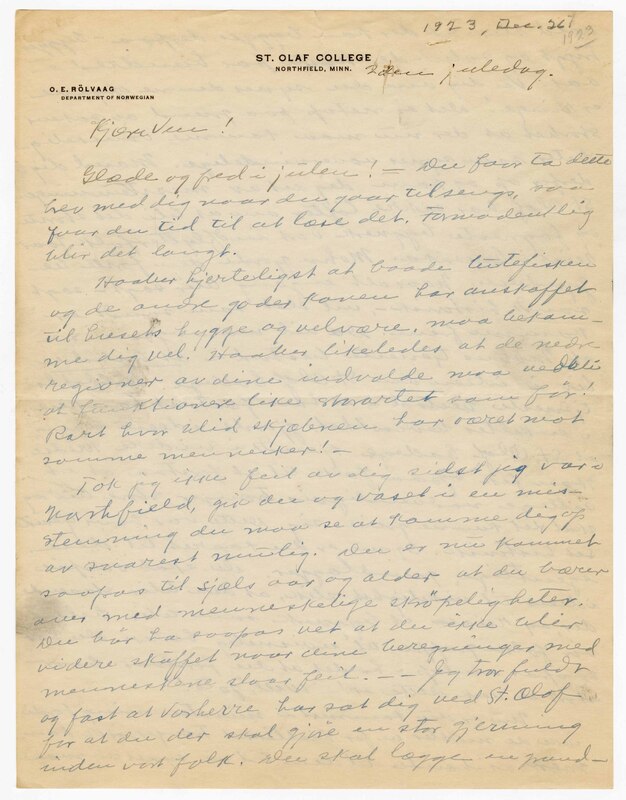 1923, Dec. 26
1923
ST. OLAF COLLEGE
NORTHFIELD, MINN.
2den juledag.
O. E. RÖLVAAG
DEPARTMENT OF NORWEGIAN
Kjære Ven!
Glæde og fred i julen! — Du faar ta dette
brev med dig naar du gaar tilsengs, saa
faar du tid til at læse det. Formodentlig
blir det langt.
Haaber hjerteligst at baade lutefisken
og de andre goder konen har anskaffet
til husets hygge og velvære, maa bekom-
me dig vel! Haaber likeledes at de nedre
regioner av dine indvolde maa vedbli
at funktionere like som før!
Rart hvor blid skjæbnen har været mot
somme mennesker! —
Tok jeg ikke feil av dig sidst jeg var i
Northfield, gik du og vaset i en mis-
stemning du maa se at komme dig op
av snarest mulig. Du er nu kommet
saapas til sjæls aar og alder at du bærer
over med menneskelige skröpeligheter.
Du bör ha saapas vet at du ikke blir
videre skuffet naar dine beregninger med
menneskene slaar feil. — — Jeg tror fuldt
og fast at Vorherre har sat dig ved St. Olaf
for at du der skal gjöre en stor gjerning
inden vort folk. Du skal lægge en grund-